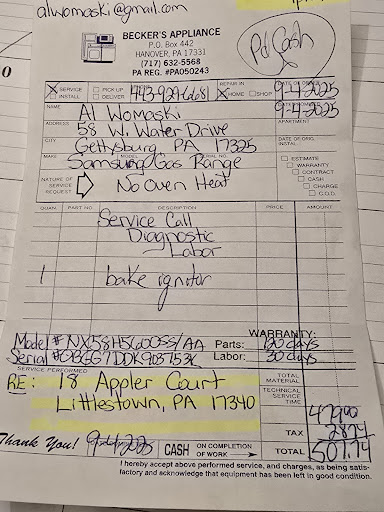 alwomaski@gmail.com
BECKER'S APPLIANCE
P.O. Box 442
HANOVER, PA 17331
(717) 632-5568
PA REG. #PA050243
Pd Cash
SERVICE
INSTALL
PICK UP
DELIVER
443-929-6681
REPAIR IN
HOME SHOP
9-4-2025
9-4-2025
NAME
Al Womaski
APARTMENT
ADDRESS
58 W. Water Drive
CITY
Gettysburg, PA 17325
DATE OF ORIG. INSTAL.
MAKE MODEL
Samsung Gas Range
NATURE OF
SERVICE
REQUEST
No Oven Heat
ESTIMATE
WARRANTY
CONTRACT
CASH
CHARGE
C.O.D.
QUAN. PART NO. DESCRIPTION PRICE AMOUNT
Service Call
Diagnostic
Labor
1 bake ignitor
WARRANTY:
Model # NX58H5600SS/AA Parts: 120 days
Serial # Labor: 30 days
SERVICE PERFORMED
RE: 18 Appler Court
Littlestown, PA 17340
TOTAL
MATERIAL
TECHNICAL
SERVICE
TIME
479.00
TAX 28.74
Thank You! 9-4-2025 CASH ON COMPLETION OF WORK TOTAL 507.74
I hereby accept above performed service, and charges, as being satis-
factory and acknowledge that equipment has been left in good condition.